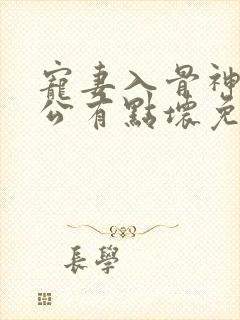 寵妻入骨神
公有點壞免
長學